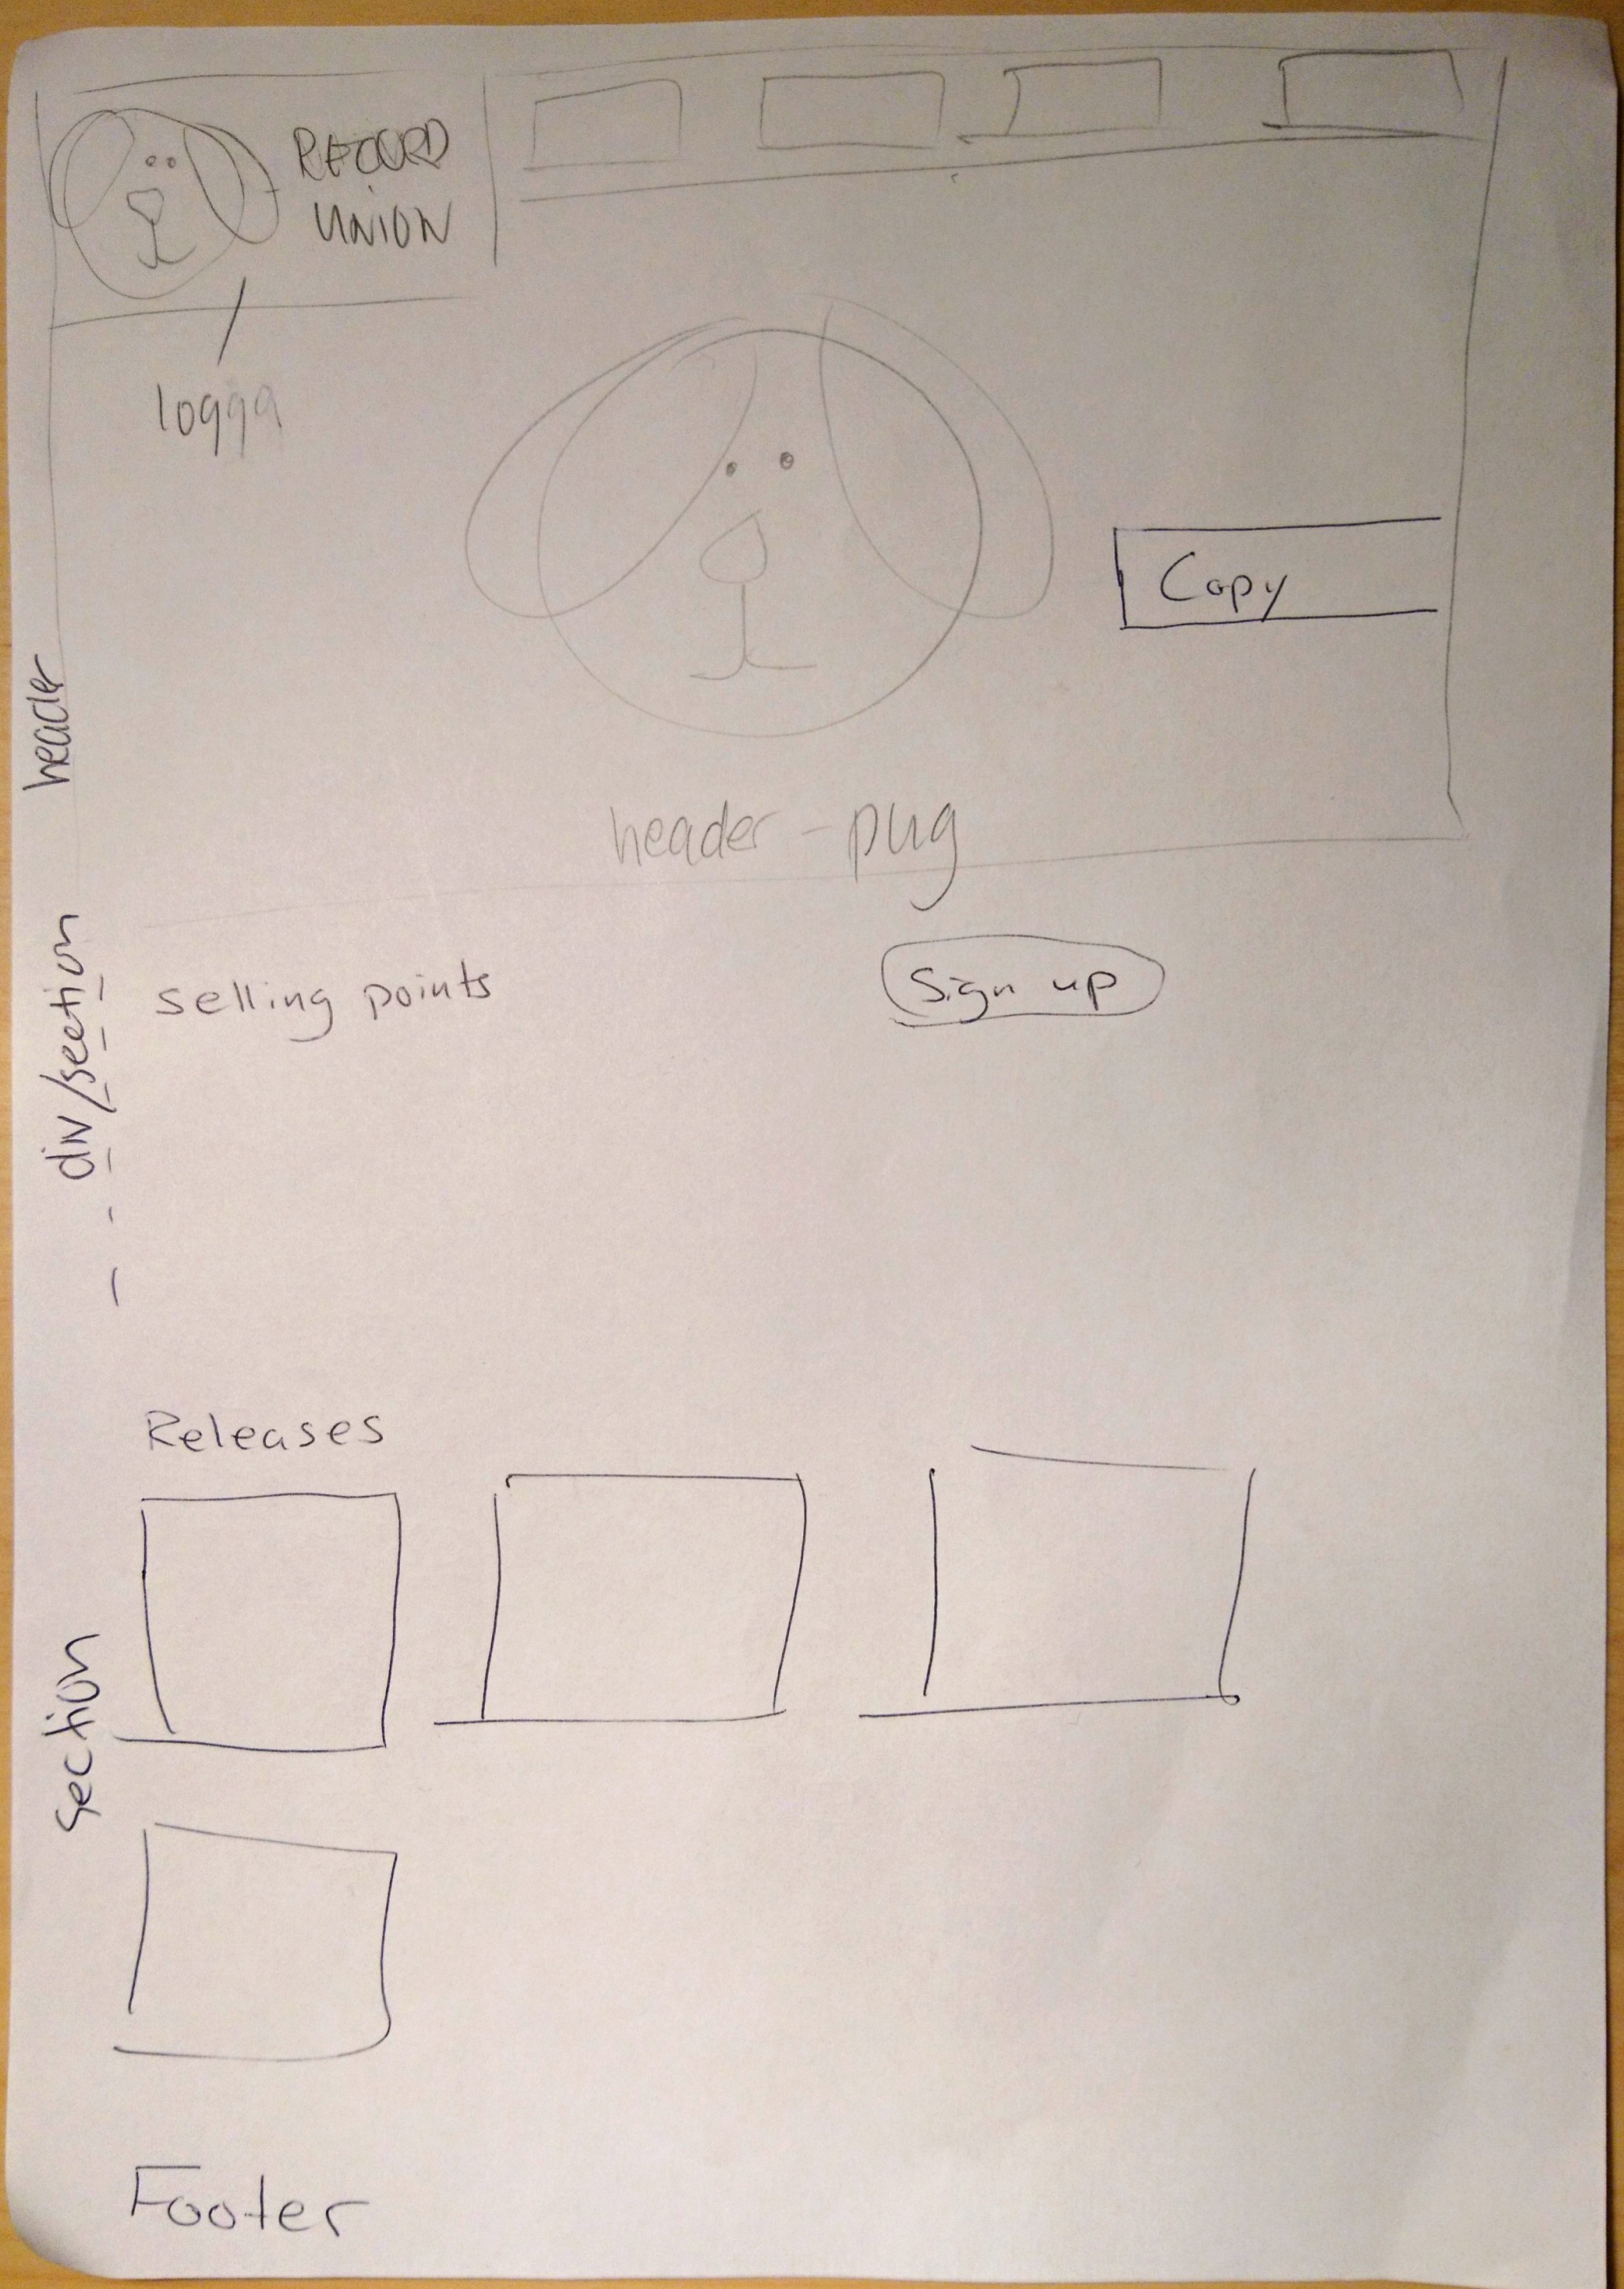 RECORD
UNION
logga
Copy
header
header - pug
div/section
selling points
Sign up
Releases
section
Footer